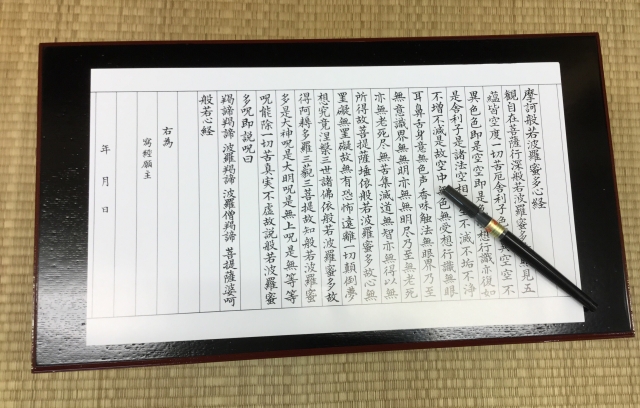 摩訶般若波羅蜜多心経
観自在菩薩行深般若波羅蜜多見五
蘊皆空度一切苦厄舎利子色空空不
異色色即是空空即是想行識亦復如
是舎利子是諸法空相不滅不垢不浄
不増不減是故空中無色無受想行識無眼
耳鼻舌身意無色声香味触法無眼界乃至
無意識界無無明亦無無明尽乃至無老死
亦無老死尽無苦集滅道無智亦無得以無
所得故菩提薩埵依般若波羅蜜多故心無
罣礙無罣礙故無有恐怖遠離一切顛倒夢
想究竟涅槃三世諸佛依般若波羅蜜多故
得阿耨多羅三藐三菩提故知般若波羅蜜
多是大神呪是大明呪是無上呪是無等等
呪能除一切苦真実不虚故説般若波羅蜜
多呪即説呪曰
羯諦羯諦 波羅羯諦 波羅僧羯諦 菩提薩婆呵
般若心経
右為
寫經願主
年 月 日